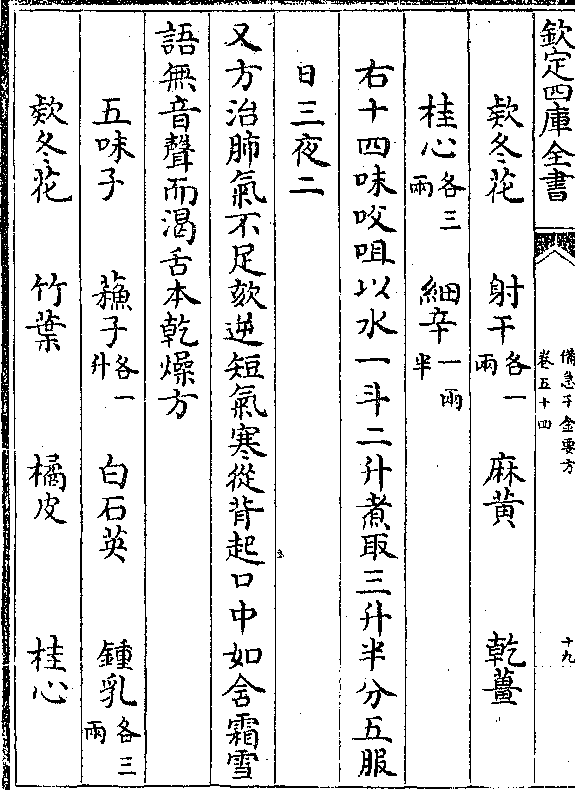 欽定四庫全書
備急千金要方
卷五十四
十九
欵冬花 射干各一兩 麻黄 乾薑
桂心各三兩 細辛一兩半
右十四味㕮咀以水一斗二升煮取三升半分五服
日三夜二
又方治肺氣不足欬逆短氣寒從背起口中如含霜雪
語無音聲而渴舌本乾燥方
五味子 蘓子各一升 白石英 鍾乳各三兩
欵冬花 竹葉 橘皮 桂心